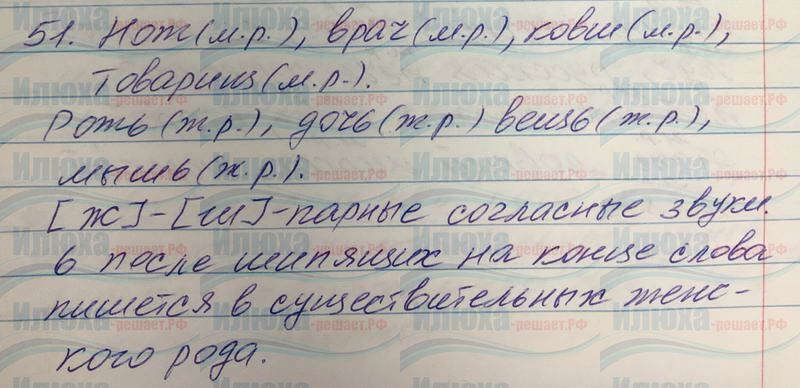 51. Нож (м.р.), врач (м.р.), ковш (м.р.),
товарищ (м.р.).
Рожь (ж.р.), дочь (ж.р.) вещь (ж.р.),
мышь (ж.р.).
[ж]-[ш]-парные согласные звуки.
ь после шипящих на конце слова
пишется в существительных женс-
кого рода.
Илюха-решает.РФ